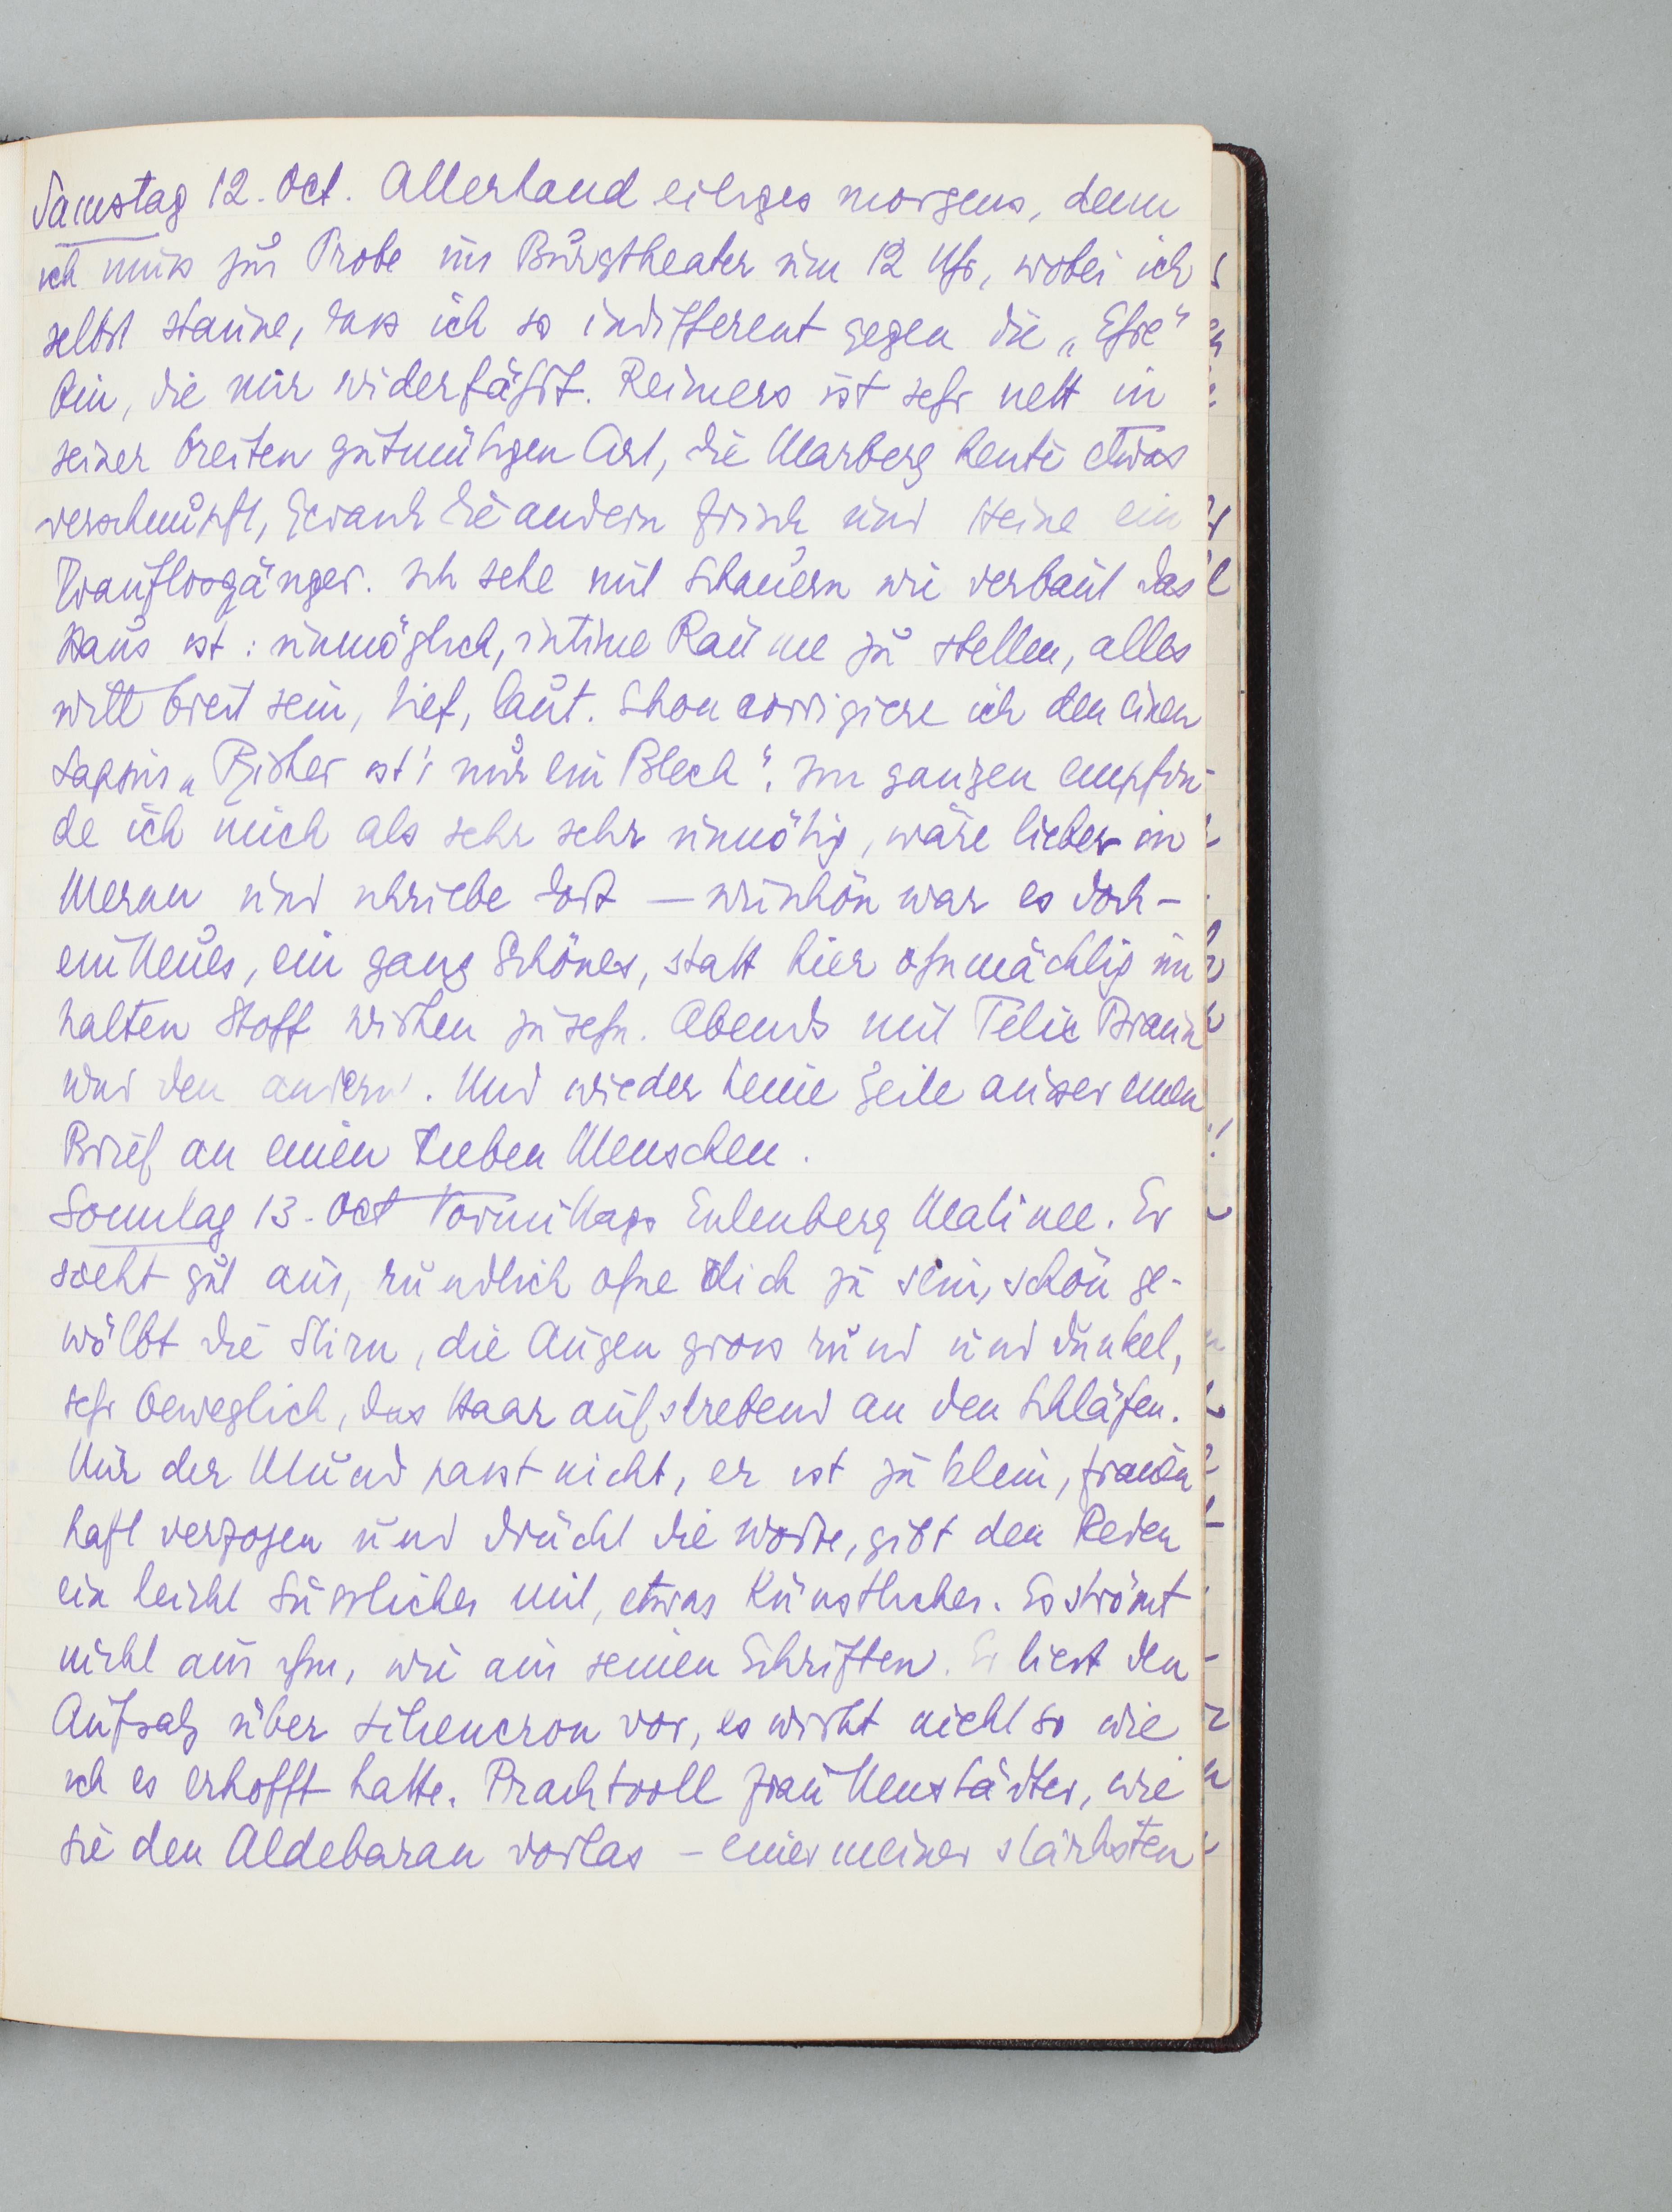 Samstag 12. Oct. Allerhand eiliges morgens, denn
ich muss zur Probe ins Burgtheater um 12 Uhr, wobei ich
selbst staune, dass ich so indifferent gegen die „Ehre"
bin, die mir widerfährt. Reimers ist sehr nett in
seiner breiten gutmütigen Art, die Marberg heute etwas
verschnupft, krank die andern frisch und Heine ein
Drauflosgänger. Ich sehe mit Schauern wie verbaut das
Haus ist: unmöglich, intime Räume zu stellen, alles
will breit sein, tief, laut. Schon corrigiere ich den einen
Lapsus „Bisher ist's nur ein Blech". Im ganzen empfin-
de ich mich als sehr sehr unnötig, wäre lieber in
Meran und schriebe dort — wunschön war es doch –
ein Neues, ein ganz Schönes, statt hier ohnmächtig im
halten Stoff wirken zu sehn. Abends mit Felix Braun
und den andern. Und wieder keine Zeile ausser einen
Brief an einen lieben Menschen.
Sonntag 13. Oct Vormittags Eulenberg Matinee. Er
sieht gut aus, rundlich ohne dick zu sein, schön ge-
wölbt die Stirn, die Augen gross rund und dunkel,
sehr beweglich, das Haar aufstrebend an den Schläfen.
Nur der Mund passt nicht, er ist zu klein, frauen
haft verzogen und drückt die Worte, gibt den Reden
ein leicht Süssliches mit, etwas Künstliches. Es strömt
nicht aus ihm, wie aus seinen Schriften. Er liest den
Aufsatz über Liliencron vor, es wirkt nicht so wie
ich es erhofft hatte. Prachtvoll Frau Neustädter, wie
sie den Aldebaran vorlas – einer meiner stärksten